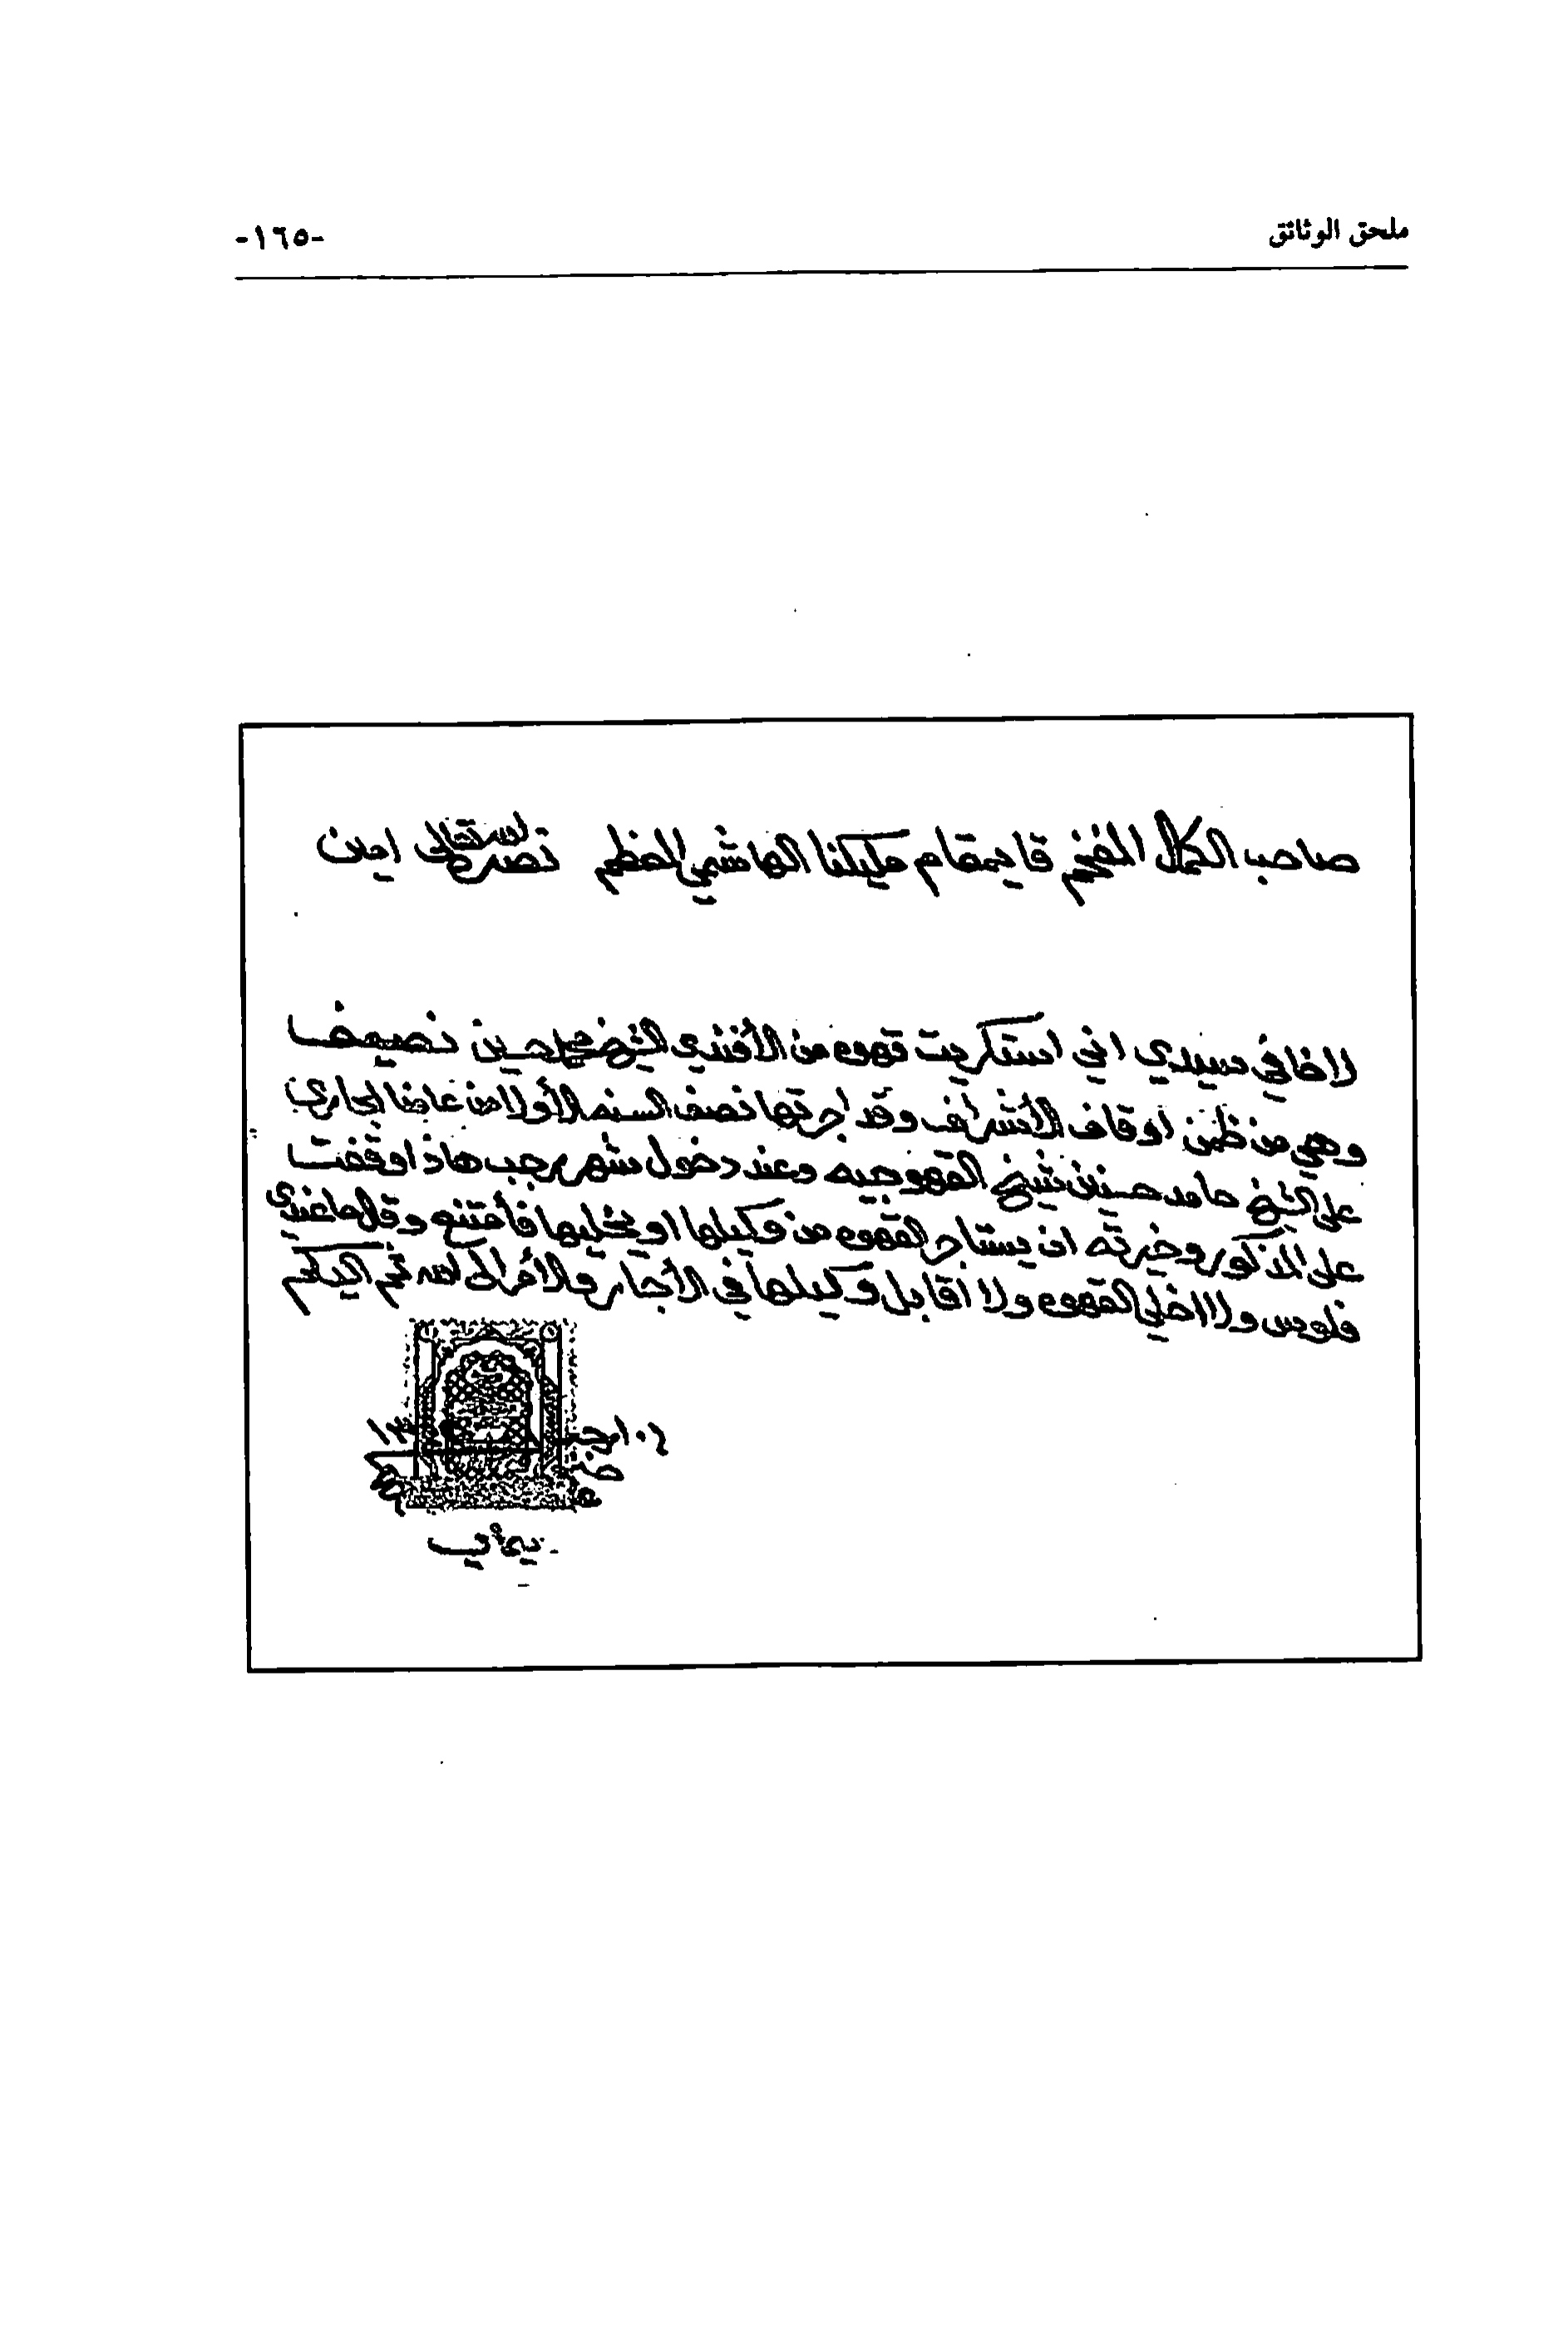 ملحق الوثائق
-١٦٥-
صاحب الكمال المفخم قايمقام مليكنا الهاشمي المعظم نصره الله تعالى امين
لا خافي سيدي اني استكريت قهوه من الأفندي الشيخ محمد حسين نصيف
وهي من ظمن اوقاف الأشراف وقد اجرتها نصف السنه الأولا من عامنا الجاري
على الشيخ حامد حسنين شيخ القهوجيه وعند دخول شهر رجب هاذا وقفت
على المذكور وخيرته ان يستاجر القهوه من وكيلها او يخليها فأمتنع وقال ما عندي
فلوس ولا اخلي القهوه ولا اقابل وكيلها في الأجار والأمر الى الله ثم اليكم
رجب